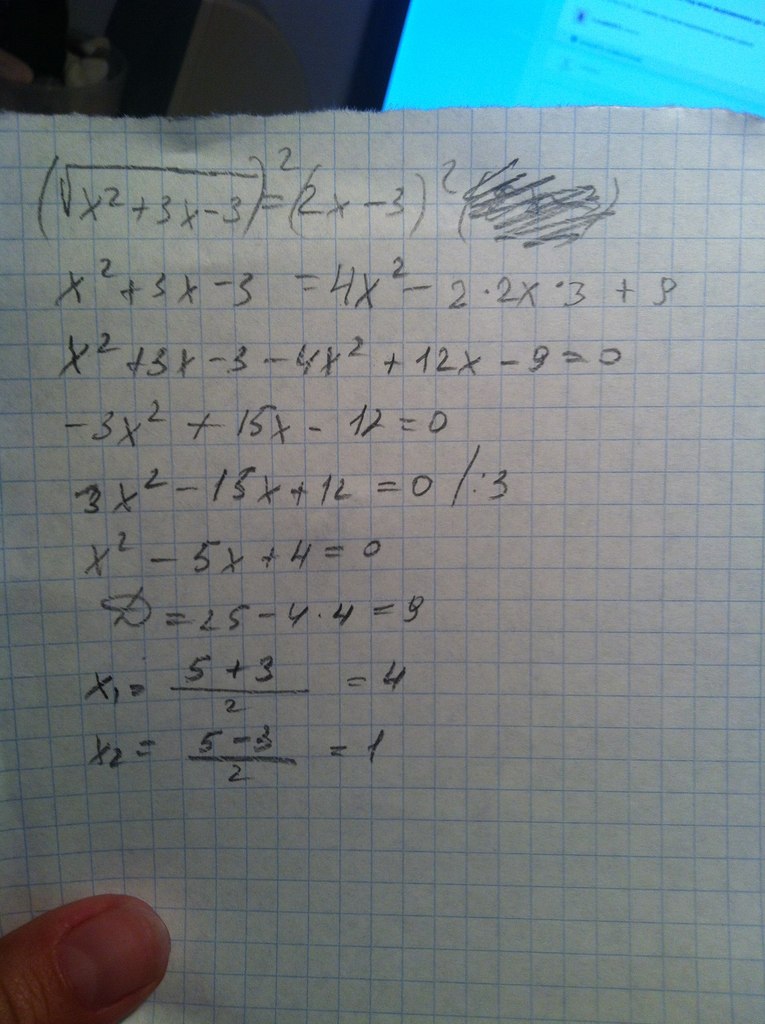 (√x² + 3x - 3)² = (2x - 3)²
x² + 3x - 3 = 4x² - 2·2x·3 + 9
x² + 3x - 3 - 4x² + 12x - 9 = 0
-3x² + 15x - 12 = 0
3x² - 15x + 12 = 0 /:3
x² - 5x + 4 = 0
D = 25 - 4·4 = 9
x₁ = (5 + 3)/2 = 4
x₂ = (5 - 3)/2 = 1